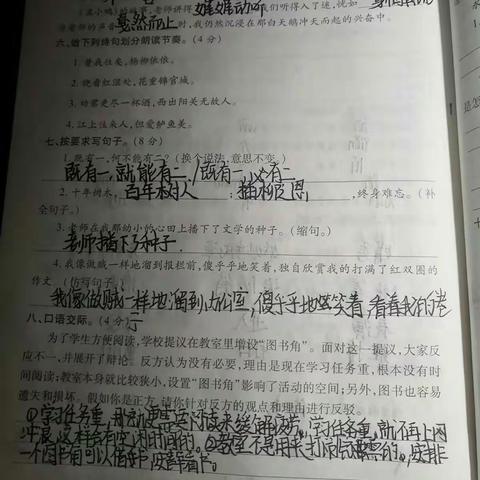 《孟小鸭》的故事，老师讲得 娓娓动听
戛然而止时，我仍然沉浸在那白天鹅冲天而起的兴奋中。
六、给下列诗句划分朗读节奏。(4分)
1. 昔我往矣，杨柳依依。
2. 晓看红湿处，花重锦官城。
3. 劝君更尽一杯酒，西出阳关无故人。
4. 江上往来人，但爱鲈鱼美。
七、按要求写句子。(8分)
1. 既有一，何不能有二？(换个说法，意思不变。)
既有一，就能有二。/既有一，必有二
2. 十年树木，百年树人；插柳之恩，终身难忘。(补
全句子。)
3. 老师在我那幼小的心田上播下了文学的种子。(缩句。)
老师播下了种子.
4. 我像做贼一样地溜到报栏前，傻乎乎地笑着，独自欣赏我的打满了红双圈的
作文。(仿写句子)
我像做贼一样地溜到办公室，傻乎乎地笑着，看着我的卷
子
八、口语交际。(4分)
为了学生方便阅读，学校提议在教室里增设“图书角”。面对这一提议，大家反
应不一，并展开了辩论。反方认为没有必要，理由是现在学习任务重，根本没有时
间阅读；教室本身就比较狭小，设置“图书角”影响了活动的空间；另外，图书也容易
遗失和损坏。假如你是正方，请你针对反方的观点和理由进行反驳。
①学习任务重，那么更要阅读来缓解疲劳。学习任务重，就不再上网
冲浪，这样会有空闲时间的。②教室不是用来打闹的，安排
一个图书角可以借书，安静看书。